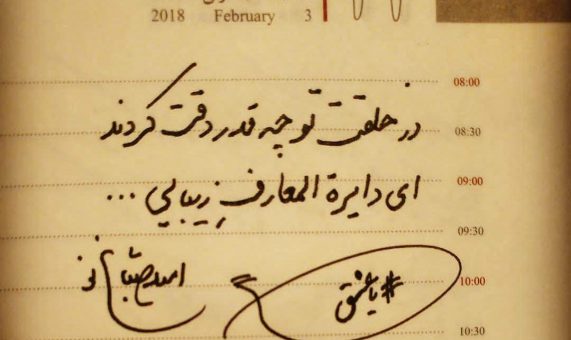 2018 February 3
08:00
در خلقت تو چه قدر دقت کردند
08:30
ای دایرة المعارفِ زیبایی ...
09:00
09:30
امید صباغ نو
#یا_عشق
10:00
10:30